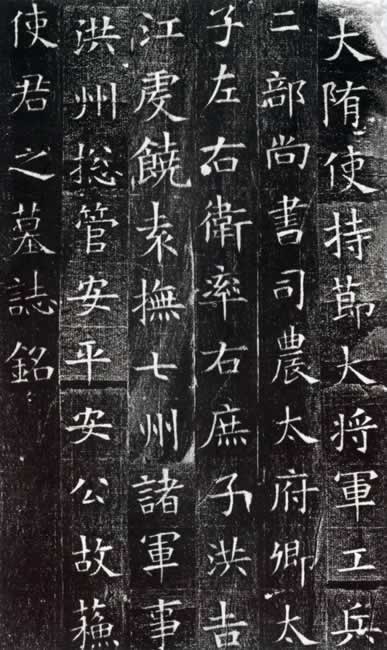 大隋使持節大将軍工兵
二部尚書司農太府卿太
子左右衛率右庶子洪吉
江虔饒袁撫七州諸軍事
洪州揔管安平安公故蘓
使君之墓誌銘